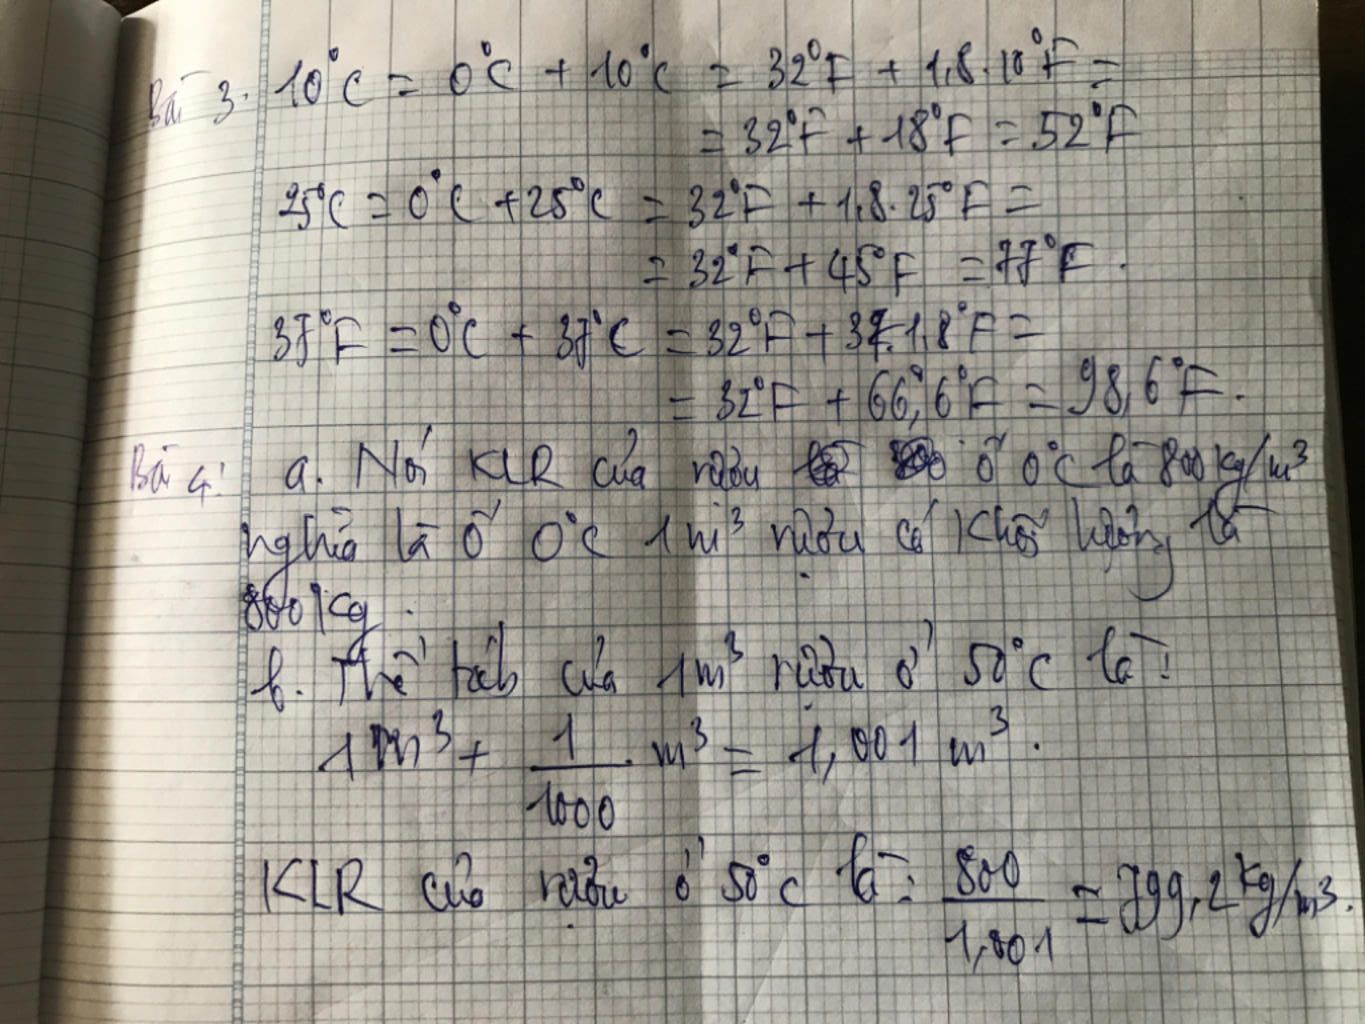 Bài 3. 10°C = 0°C + 10°C = 32°F + 1,8.10°F =
= 32°F + 18°F = 52°F
25°C = 0°C + 25°C = 32°F + 1,8.25°F =
= 32°F + 45°F = 77°F.
37°F = 0°C + 37°C = 32°F + 37.1,8°F =
= 32°F + 66,6°F = 98,6°F.
Bài 4: a. Nói KLR của rượu ở 0°C là 800kg/m³
nghĩa là ở 0°C 1m³ rượu có khối lượng là
800kg.
b. Thể tích của 1m³ rượu ở 50°C là:
1m³ + 1/1000 m³ = 1,001 m³.
KLR của rượu ở 50°C là: 800/1,001 = 799,2kg/m³.